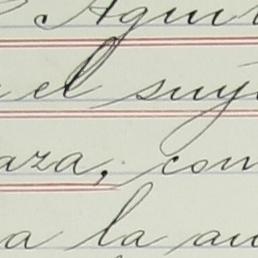 Agui
el suy
aza, con
a la au